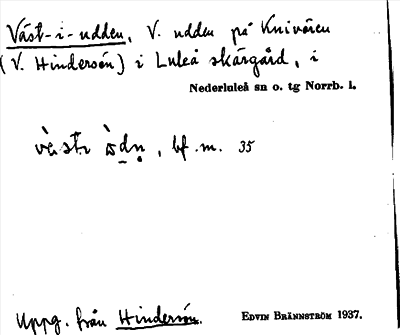 Väst-i-udden, V. udden på Knivören
(V. Hindersön) i Luleå skärgård, i
Nederluleå sn o. tg Norrb. l.
bf. m. 35
Uppg. från Hindersön.
EDVIN BRÄNNSTRÖM 1937.